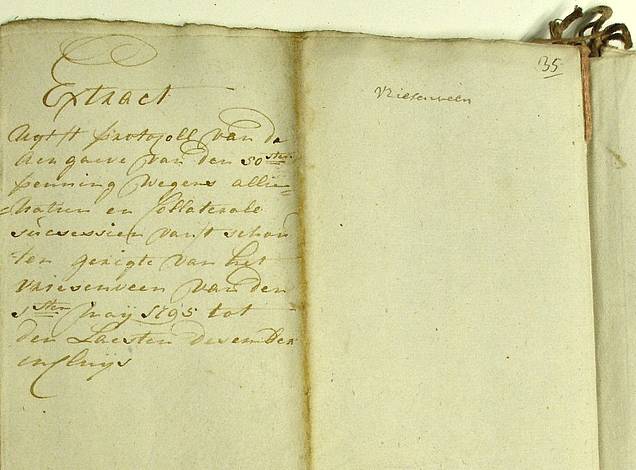 Extract
Uijt't protocoll van de
aengaeve van den 50sten
penning wegens allie=
=natien en Collaterale
successien van't schou
ten gerigte van het
vriesenveen van den
1sten maij 1795 tot
den laesten desember
incluijs
35
Vriesenveen